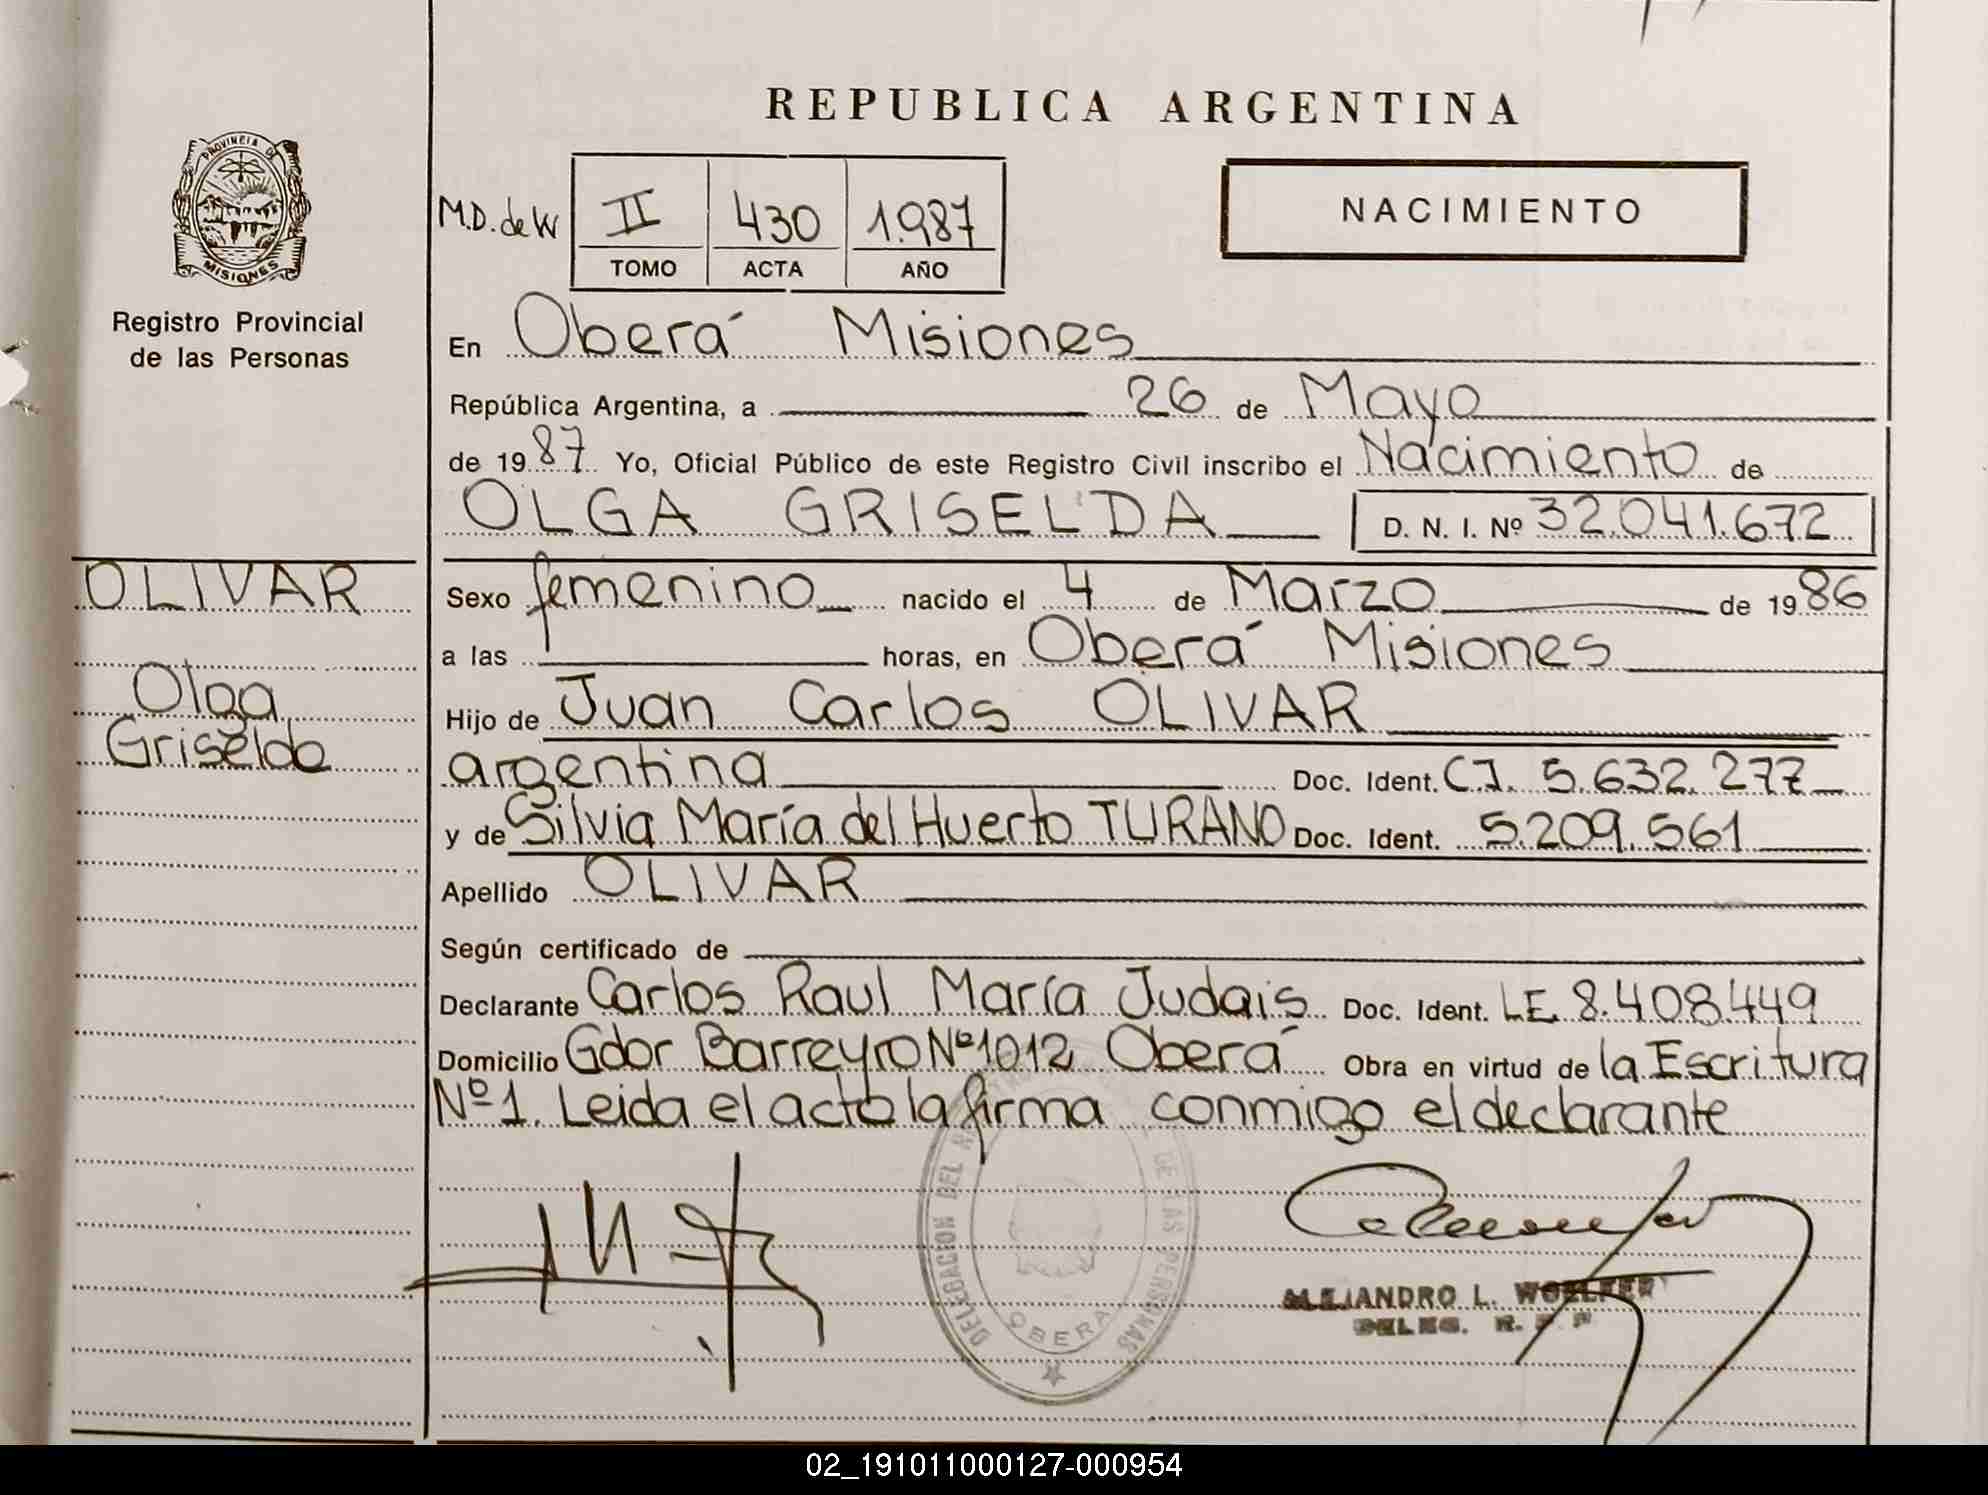 REPUBLICA ARGENTINA
PROVINCIA DE
MISIONES
Registro Provincial
de las Personas
M.D. de W
II 430 1.987
TOMO ACTA AÑO
NACIMIENTO
En Oberá Misiones
República Argentina, a 26 de Mayo
de 1987 Yo, Oficial Público de este Registro Civil inscribo el Nacimiento de
OLGA GRISELDA D. N. I. Nº 32.041.672
OLIVAR
Olga
Griselda
Sexo femenino nacido el 4 de Marzo de 1986
a las horas, en Oberá Misiones
Hijo de Juan Carlos OLIVAR
argentina Doc. Ident. C.I. 5.632.277
y de Silvia María del Huerto TURANO Doc. Ident. 5.209.561
Apellido OLIVAR
Según certificado de
Declarante Carlos Raul María Judais Doc. Ident. LE. 8.408.449
Domicilio Gdor Barreyro Nº 1012 Oberá Obra en virtud de la Escritura
Nº 1. Leida el acto la firma conmigo el declarante
DELEGACION DEL DE LAS PERSONAS
OBERA
ALEJANDRO L. WOELFERT
DELEG. R.
02_191011000127-000954